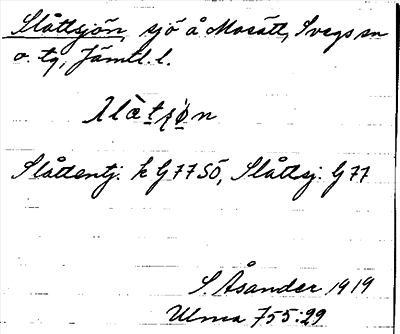 Slåttsjön, sjö å Mosätt, Svegs sn
o. tg, Jämtl. l.
Slåttentj. k G77SÖ, Slåttsj. G77
S. Åsander 1919
Ulma 755:29